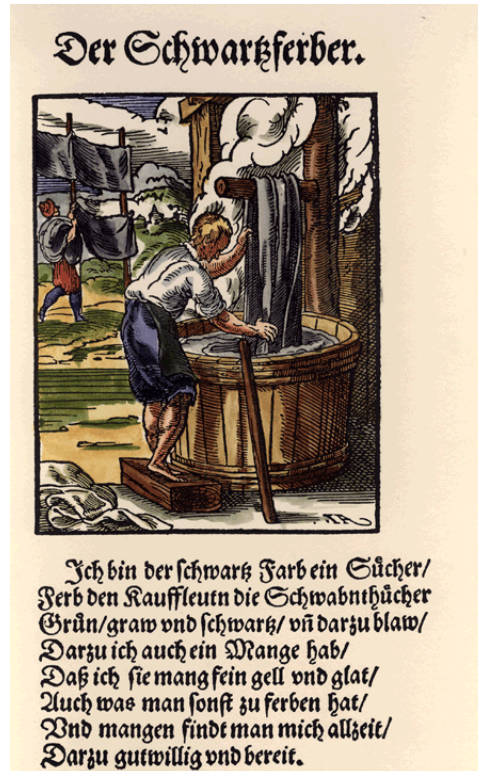 Der Schwartzferber.
IA
Ich bin der schwartz Farb ein Sücher/
Ferb den Kauffleutn die Schwabnthücher
Grün/graw vnd schwartz/ vñ darzu blaw/
Darzu ich auch ein Mange hab/
Daß ich sie mang fein gell vnd glat/
Auch was man sonst zu ferben hat/
Vnd mangen findt man mich allzeit/
Darzu gutwillig vnd bereit.